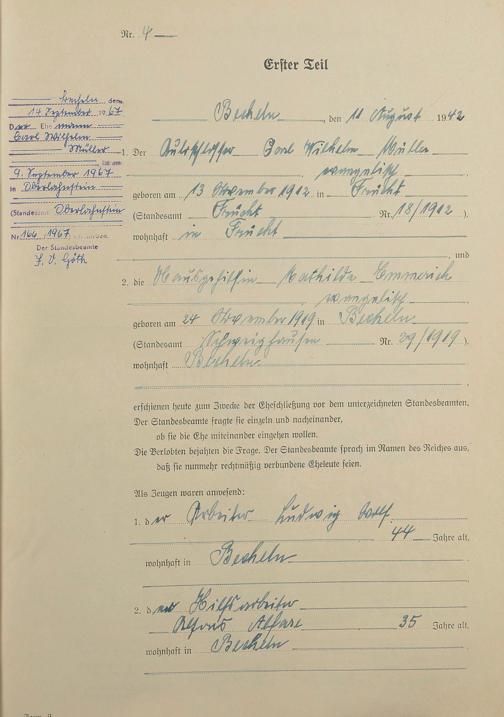 Nr. 4
Erster Teil
Becheln, den 11 August 1942
Becheln, den
14 September 1967
Der Ehemann
Carl Wilhelm
Müller
ist am
9. September 1967
in Oberlahnstein
(Standesamt Oberlahnstein
Nr. 166/1967
Der Standesbeamte
1. Der Carl Wilhelm Müller
evangelisch
geboren am 13 November 1912 in Frücht
(Standesamt Frücht Nr. 18/1912)
wohnhaft in Frücht
und
2. die Hausgehilfin Mathilde Emmerich
evangelisch
geboren am 24 November 1919 in Becheln
(Standesamt Schweighausen Nr. 29/1919)
wohnhaft Becheln
erschienen heute zum Zwecke der Eheschließung vor dem unterzeichneten Standesbeamten.
Der Standesbeamte fragte sie einzeln und nacheinander,
ob sie die Ehe miteinander eingehen wollen.
Die Verlobten bejahten die Frage. Der Standesbeamte sprach im Namen des Reiches aus,
daß sie nunmehr rechtmäßig verbundene Eheleute seien.
Als Zeugen waren anwesend:
1. der Arbeiter Ludwig
44 Jahre alt,
wohnhaft in Becheln
2. der Hilfsarbeiter
Alfons 35 Jahre alt,
wohnhaft in Becheln